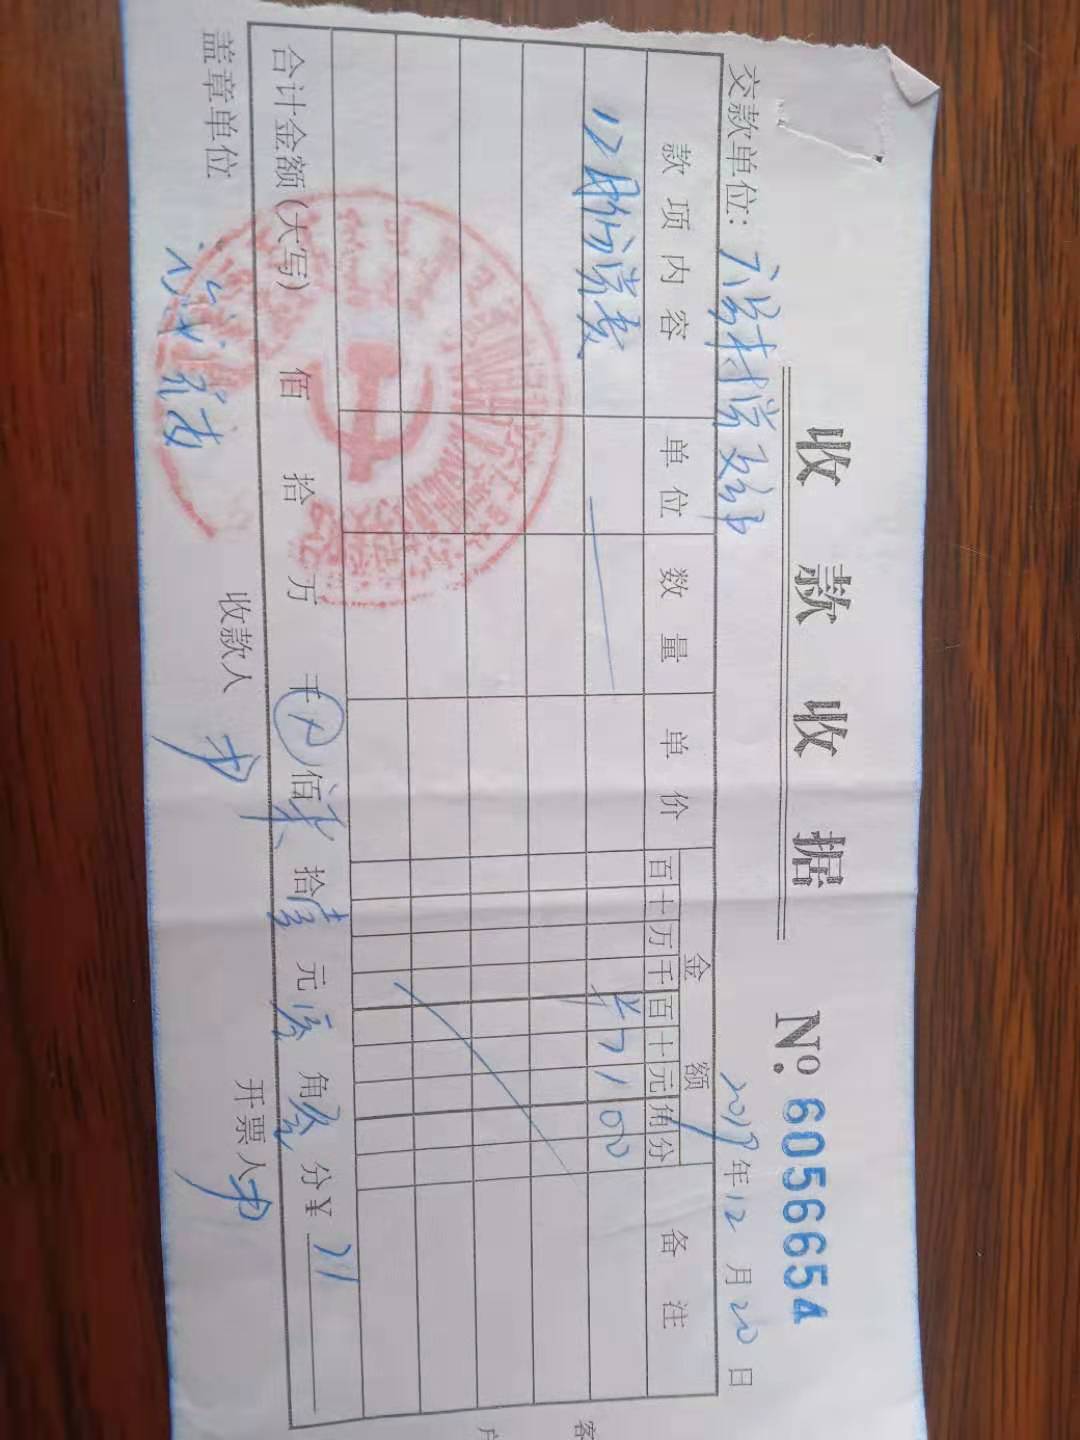 收款收据
№ 6056654
交款单位: 2019年12月20日
款项内容 单位 数量 单价 金额 备注
百十万千百十元角分
12月份党费 7100
合计金额(大写) 佰 拾 万 千 佰柒拾壹元零角零分¥ 71
盖章单位 收款人 开票人
客
户